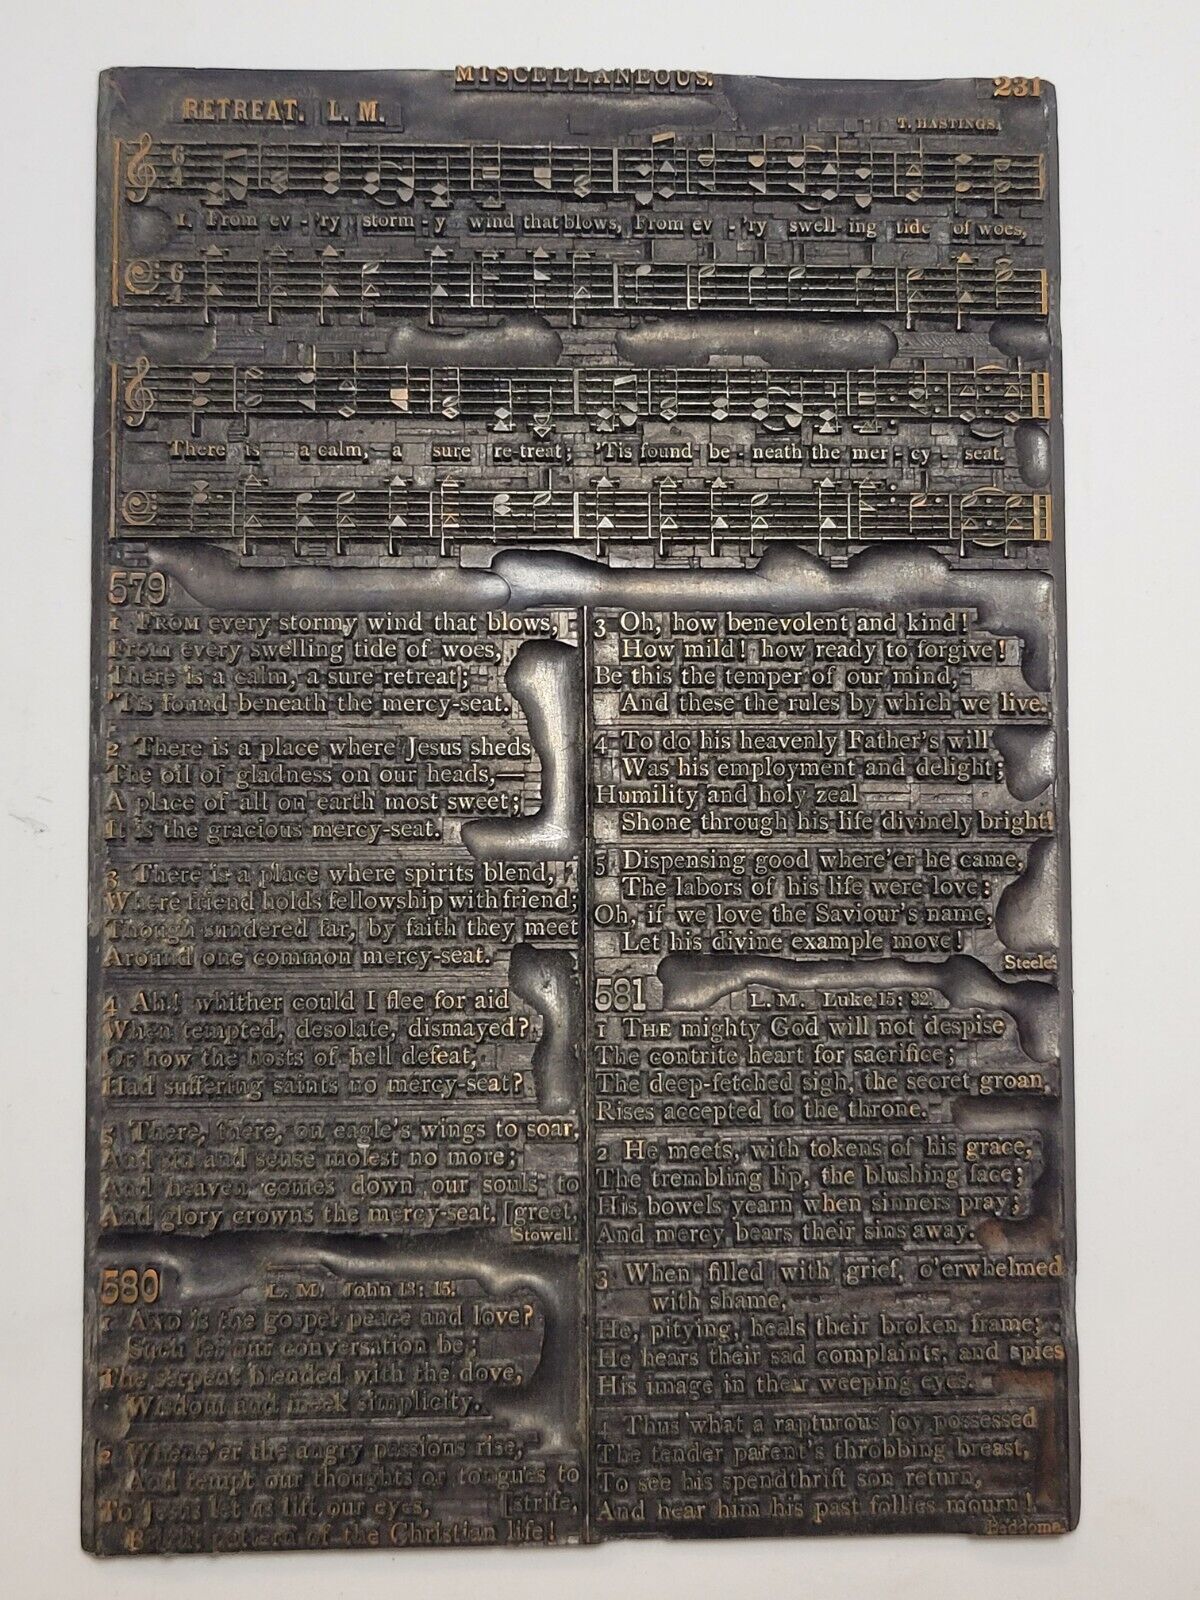 MISCELLANEOUS.
231
RETREAT. L. M.
T. HASTINGS.
6
4
1. From ev - 'ry storm - y wind that blows, From ev - 'ry swell - ing tide of woes,
6
4
There is a calm, a sure re-treat; 'Tis found be - neath the mer - cy - seat.
579
1 FROM every stormy wind that blows,
From every swelling tide of woes,
There is a calm, a sure retreat;
'Tis found beneath the mercy-seat.
2 There is a place where Jesus sheds
The oil of gladness on our heads,—
A place of all on earth most sweet;
It is the gracious mercy-seat.
3 There is a place where spirits blend,
Where friend holds fellowship with friend;
Though sundered far, by faith they meet
Around one common mercy-seat.
4 Ah! whither could I flee for aid
When tempted, desolate, dismayed?
Or how the hosts of hell defeat,
Had suffering saints no mercy-seat?
5 There, there, on eagle's wings to soar,
And sin and sense molest no more;
And heaven comes down our souls to
And glory crowns the mercy-seat. [greet,
Stowell.
580
L. M. John 13: 15.
1 AND is the gospel peace and love?
Such let our conversation be;
The serpent blended with the dove,
Wisdom and meek simplicity.
2 Whene'er the angry passions rise,
And tempt our thoughts or tongues to
To Jesus let us lift our eyes, [strife,
Bright pattern of the Christian life!
3 Oh, how benevolent and kind!
How mild! how ready to forgive!
Be this the temper of our mind,
And these the rules by which we live.
4 To do his heavenly Father's will
Was his employment and delight;
Humility and holy zeal
Shone through his life divinely bright!
5 Dispensing good where'er he came,
The labors of his life were love;
Oh, if we love the Saviour's name,
Let his divine example move!
Steele.
581
L. M. Luke 15: 32.
1 THE mighty God will not despise
The contrite heart for sacrifice;
The deep-fetched sigh, the secret groan,
Rises accepted to the throne.
2 He meets, with tokens of his grace,
The trembling lip, the blushing face;
His bowels yearn when sinners pray;
And mercy bears their sins away.
3 When filled with grief, o'erwhelmed
with shame,
He, pitying, heals their broken frame;
He hears their sad complaints, and spies
His image in their weeping eyes.
4 Thus what a rapturous joy possessed
The tender parent's throbbing breast,
To see his spendthrift son return,
And hear him his past follies mourn!
Beddome.